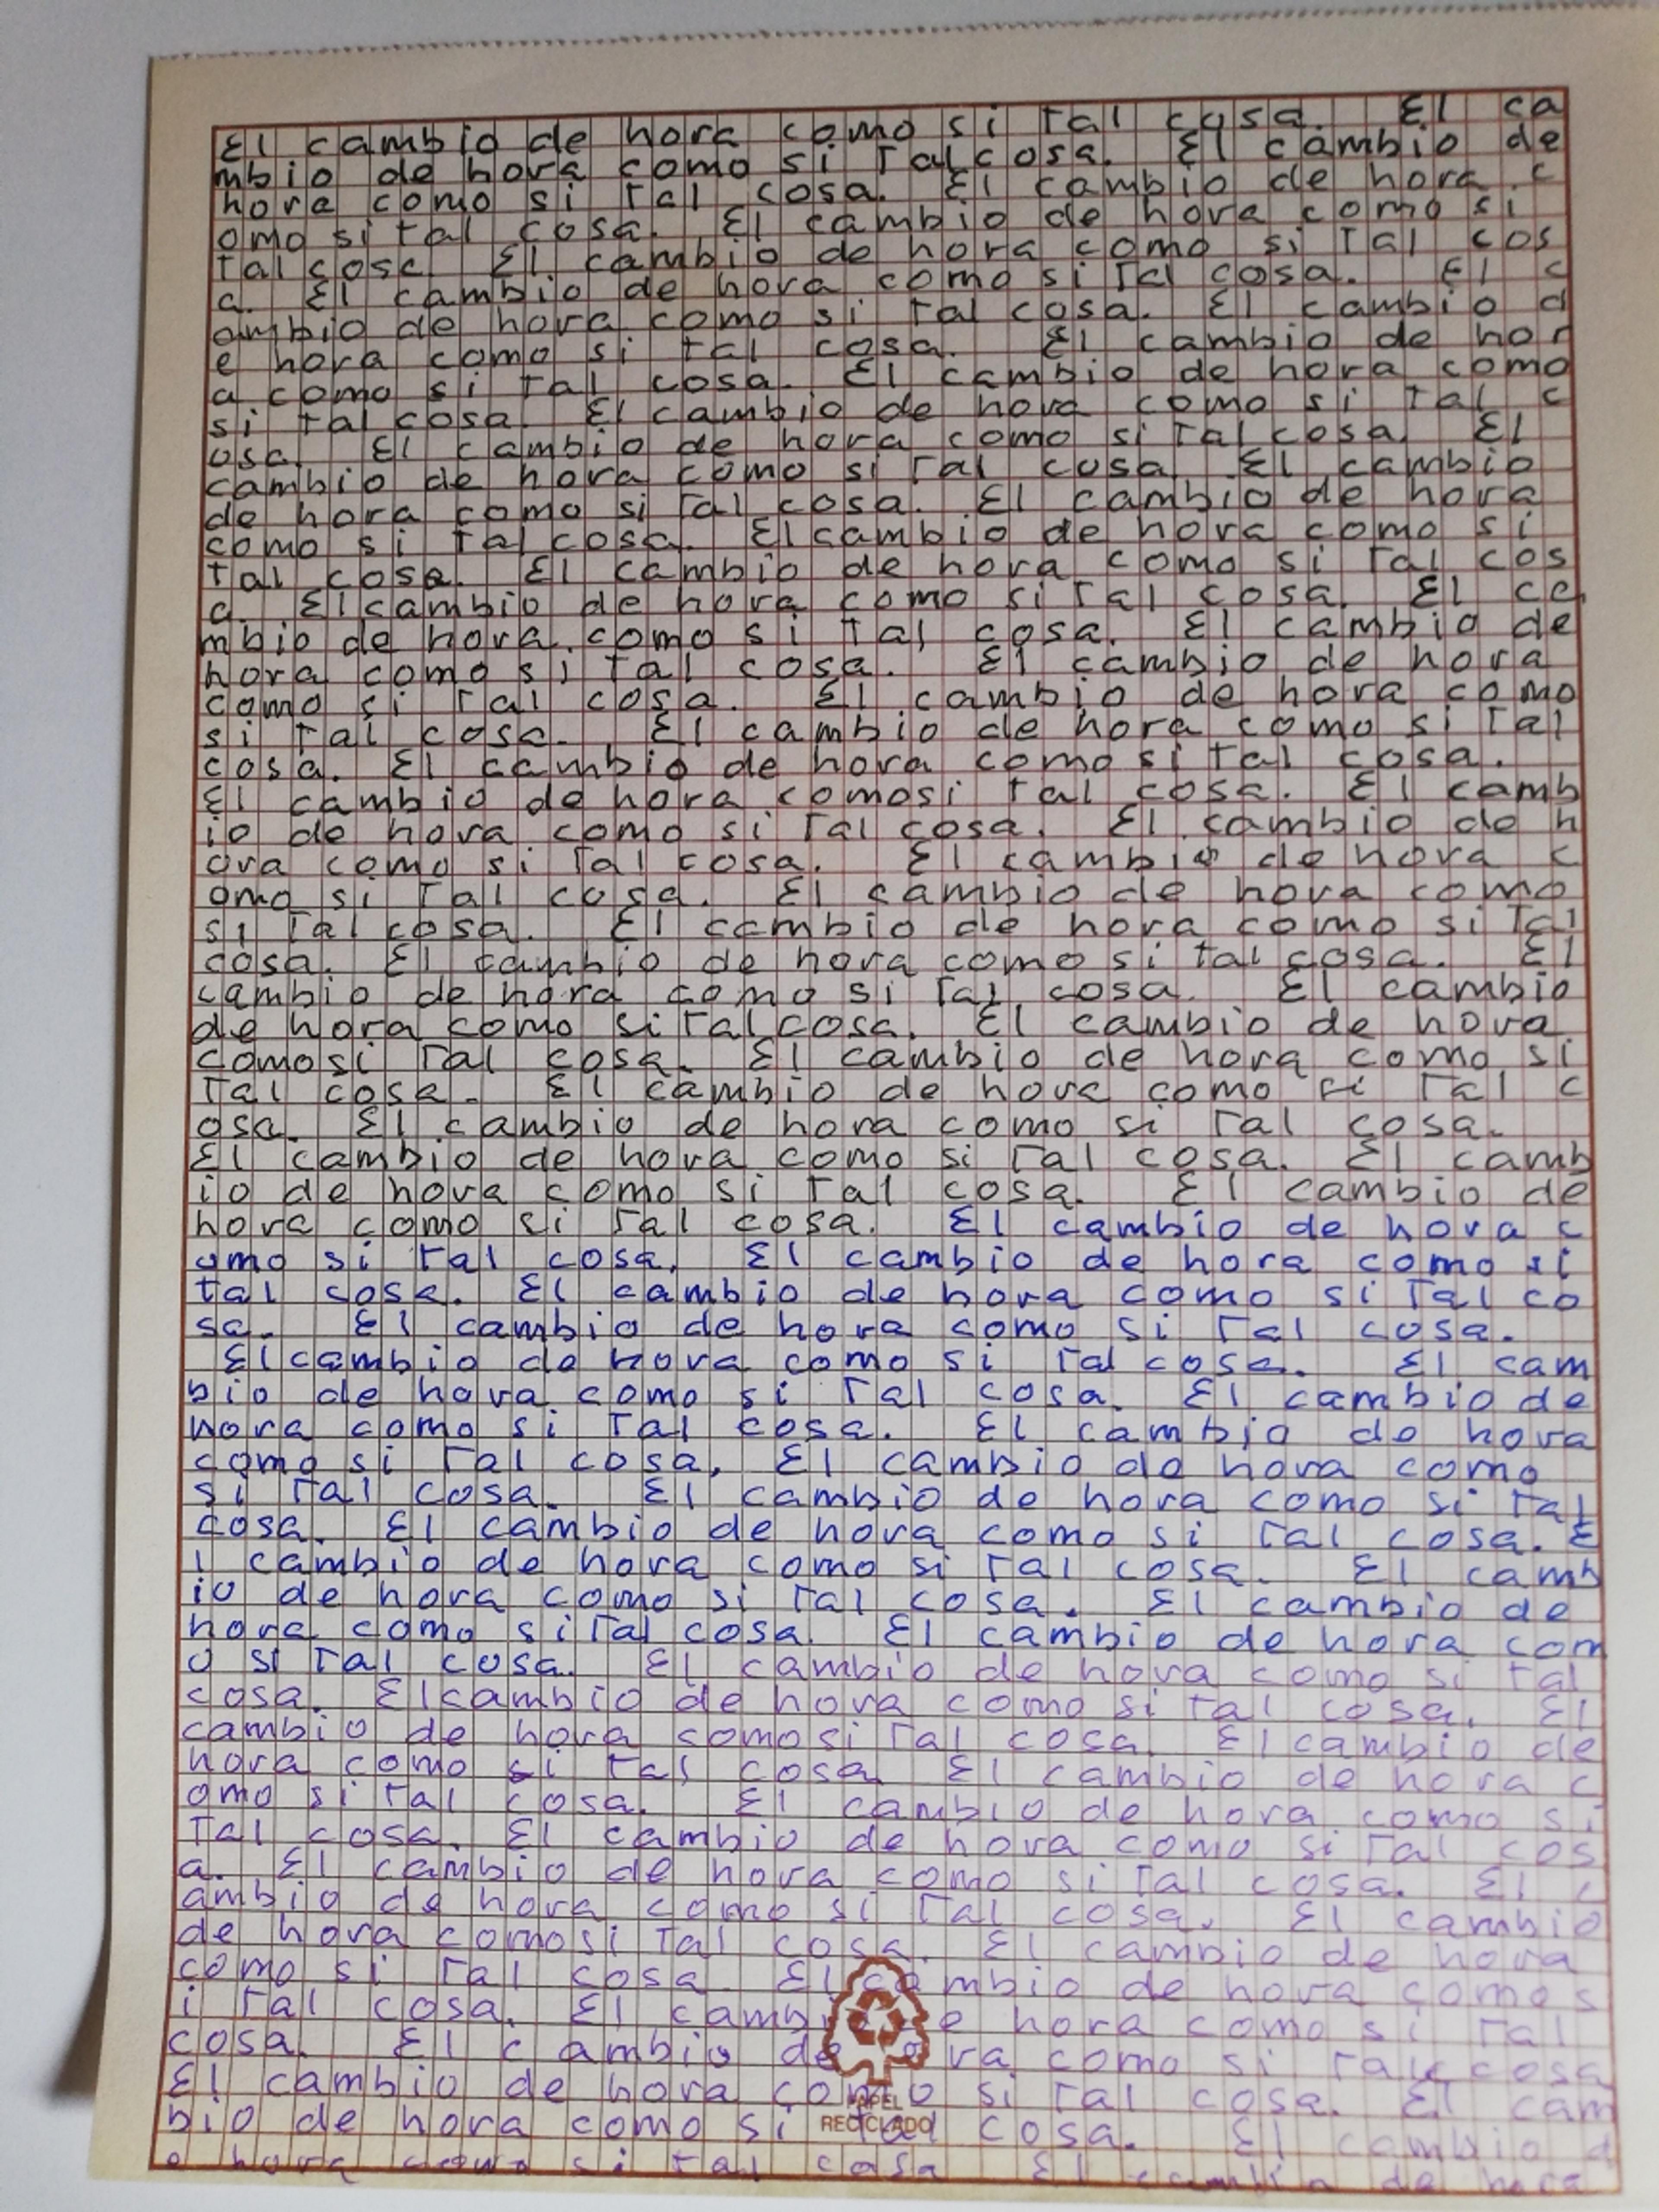 El cambio de hora como si tal cosa. El ca
mbio de hora como si tal cosa. El cambio de
hora como si tal cosa. El cambio de hora c
omo si tal cosa. El cambio de hora como si
tal cosa El cambio de hora como si tal cos
a. El cambio de hora como si tal cosa. El c
ambio de hora como si tal cosa. El cambio d
e hora como si tal cosa. El cambio de hor
a como si tal cosa. El cambio de hora como
si tal cosa. El cambio de hora como si tal c
osa. El cambio de hora como si tal cosa. El
cambio de hora como si tal cosa. El cambio
de hora como si tal cosa. El cambio de hora
como si tal cosa. El cambio de hora como si
tal cosa. El cambio de hora como si tal cos
a. El cambio de hora como si tal cosa. El ca
mbio de hora como si tal cosa. El cambio de
hora como si tal cosa. El cambio de hora
como si tal cosa. El cambio de hora como
si tal cosa. El cambio de hora como si tal
cosa. El cambio de hora como si tal cosa.
El cambio de hora como si tal cosa. El camb
io de hora como si tal cosa. El cambio de h
ora como si tal cosa. El cambio de hora c
omo si tal cosa. El cambio de hora como
si tal cosa. El cambio de hora como si tal
cosa. El cambio de hora como si tal cosa. El
cambio de hora como si tal cosa. El cambio
de hora como si tal cosa. El cambio de hora
como si tal cosa. El cambio de hora como si
tal cosa. El cambio de hora como si tal c
osa. El cambio de hora como si tal cosa.
El cambio de hora como si tal cosa. El camb
io de hora como si tal cosa. El cambio de
hora como si tal cosa. El cambio de hora c
omo si tal cosa. El cambio de hora como si
tal cosa. El cambio de hora como si tal co
sa. El cambio de hora como si tal cosa.
El cambio de hora como si tal cosa. El cam
bio de hora como si tal cosa. El cambio de
hora como si tal cosa. El cambio de hora
como si tal cosa. El cambio de hora como
si tal cosa. El cambio de hora como si tal
cosa. El cambio de hora como si tal cosa. E
l cambio de hora como si tal cosa. El camb
io de hora como si tal cosa. El cambio de
hora como si tal cosa. El cambio de hora com
o si tal cosa. El cambio de hora como si tal
cosa. El cambio de hora como si tal cosa. El
cambio de hora como si tal cosa El cambio de
hora como si tal cosa. El cambio de hora c
omo si tal cosa. El cambio de hora como si
tal cosa. El cambio de hora como si tal cos
a. El cambio de hora como si tal cosa. El c
ambio de hora como si tal cosa. El cambio
de hora como si tal cosa. El cambio de hora
como si tal cosa. El cambio de hora como s
i tal cosa. El camb e hora como si tal
cosa. El cambio de ora como si tal cosa
El cambio de hora como si tal cosa. El cam
bio de hora como si tal cosa. El cambio d
e hora como si tal cosa El cambio de hora
PAPEL
RECICLADO